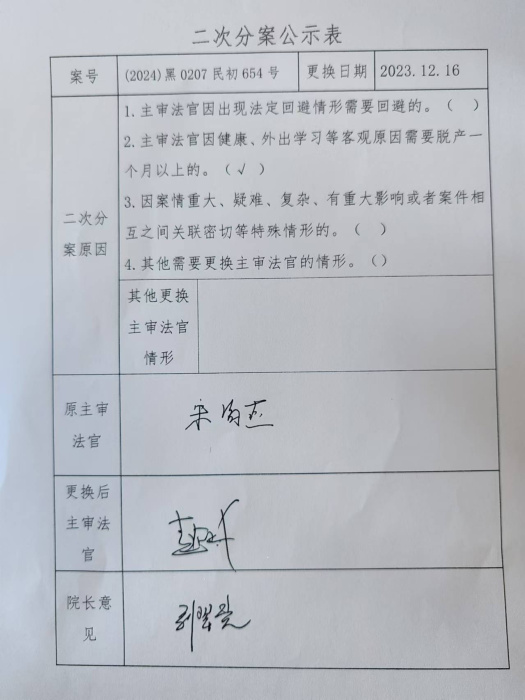 二次分案公示表
案号
(2024)黑 0207 民初 654 号
更换日期
2023.12.16
二次分
案原因
1.主审法官因出现法定回避情形需要回避的。（ ）
2.主审法官因健康、外出学习等客观原因需要脱产一
个月以上的。（√）
3.因案情重大、疑难、复杂、有重大影响或者案件相
互之间关联密切等特殊情形的。（ ）
4.其他需要更换主审法官的情形。（）
其他更换
主审法官
情形
原主审
法官
更换后
主审法
官
院长意
见